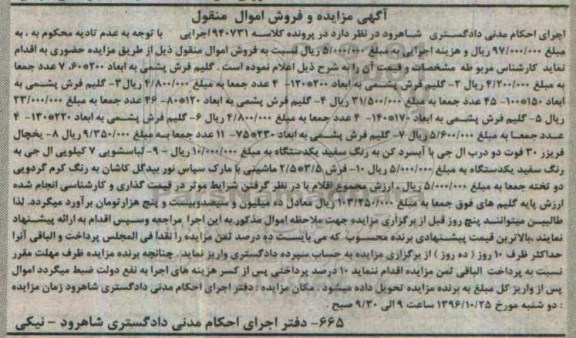 آگهی مزایده و فروش اموال منقول
اجرای احکام مدنی دادگستری شاهرود در نظر دارد در پرونده کلاسه ۹۴۰۷۳۱اجرایی با توجه به عدم تادیه محکوم به ، به
مبلغ ۹۷/۰۰۰/۰۰۰ ریال و هزینه اجرایی به مبلغ ۵/۰۰۰/۰۰۰ ریال نسبت به فروش اموال منقول ذیل از طریق مزایده حضوری به اقدام
نماید کارشناس مربوطه مشخصات و قیمت آن را به شرح ذیل اعلام نموده است . گلیم فرش پشمی به ابعاد ۲۰۰*۶۰، ۷ عدد جمعا
به مبلغ ۴/۲۰۰/۰۰۰ ریال ۲- گلیم فرش پشمی به ابعاد ۲۰۰*۱۲۰- ۴ عدد جمعا به مبلغ ۴/۸۰۰/۰۰۰ ریال ۳- گلیم فرش پشمی به
ابعاد ۱۵۰*۱۰۰- ۴۵ عدد جمعا به مبلغ ۳۱/۵۰۰/۰۰۰ ریال ۴- گلیم فرش پشمی به ابعاد ۱۲۰*۸۰- ۴۶ عدد جمعا به مبلغ ۲۳/۰۰۰/۰۰۰
ریال ۵- گلیم فرش پشمی به ابعاد ۱۷۰*۱۴۰- ۴ عدد جمعا به مبلغ ۴/۸۰۰/۰۰۰ ریال ۶- گلیم فرش پشمی به ابعاد ۲۲۰*۱۳۰- ۴
عدد جمعا به مبلغ ۵/۶۰۰/۰۰۰ ریال ۷- گلیم فرش پشمی به ابعاد ۲۳۰*۷۵- ۱۱ عدد جمعا به مبلغ ۹/۳۵۰/۰۰۰ ریال ۸- یخچال
فریزر ۳۰ فوت دو درب ال جی با آبسرد کن به رنگ سفید یکدستگاه به مبلغ ۱۰/۰۰۰/۰۰۰ ریال ۹- لباسشویی ۷ کیلویی ال جی به
رنگ سفید یکدستگاه به مبلغ ۵/۰۰۰/۰۰۰ ریال ۱۰- فرش ۳/۵*۲/۵ ماشینی با مارک سپاس نور بیدگل کاشان به رنگ کرم گردویی
دو تخته جمعا به مبلغ ۵/۰۰۰/۰۰۰ ریال . ارزش مجموع اقلام با در نظر گرفتن شرایط موثر در قیمت گذاری و کارشناسی انجام شده
ارزش پایه گلیم های فوق جمعا به مبلغ ۱۰۳/۲۵۰/۰۰۰ ریال معادل ده میلیون و سیصدوبیست و پنج هزارتومان برآورد میگردد. لذا
طالبین میتوانند پنج روز قبل از برگزاری مزایده جهت ملاحظه اموال مذکور به این اجرا مراجعه وسپس اقدام به ارائه پیشنهاد
نمایند .بالاترین قیمت پیشنهادی برنده محسوب که می بایست ده درصد ثمن مزایده را نقدا فی المجلس پرداخت و الباقی آنرا
حداکثر ظرف ۱۰ روز ( ده روز ) از برگزاری مزایده به حساب سپرده دادگستری واریز نماید . چنانچه برنده مزایده ظرف مهلت مقرر
نسبت به پرداخت الباقی ثمن مزایده اقدام ننماید ۱۰ درصد پرداختی پس از کسر هزینه های اجرا به نفع دولت ضبط میگردد اموال
پس از واریز کل مبلغ به برنده مزایده تحویل داده میشود . مکان مزایده : دفتر اجرای احکام مدنی دادگستری شاهرود زمان مزایده
: دو شنبه مورخ ۱۳۹۶/۱۰/۲۵ ساعت ۹ الی ۹/۳۰ صبح .
۶۶۵- دفتر اجرای احکام مدنی دادگستری شاهرود - نیکی